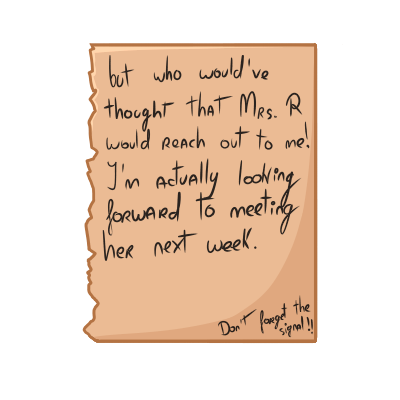 but who would've
thought that Mrs. R
would reach out to me!
I'm actually looking
forward to meeting
her next week.
Don't forget the
signal!!